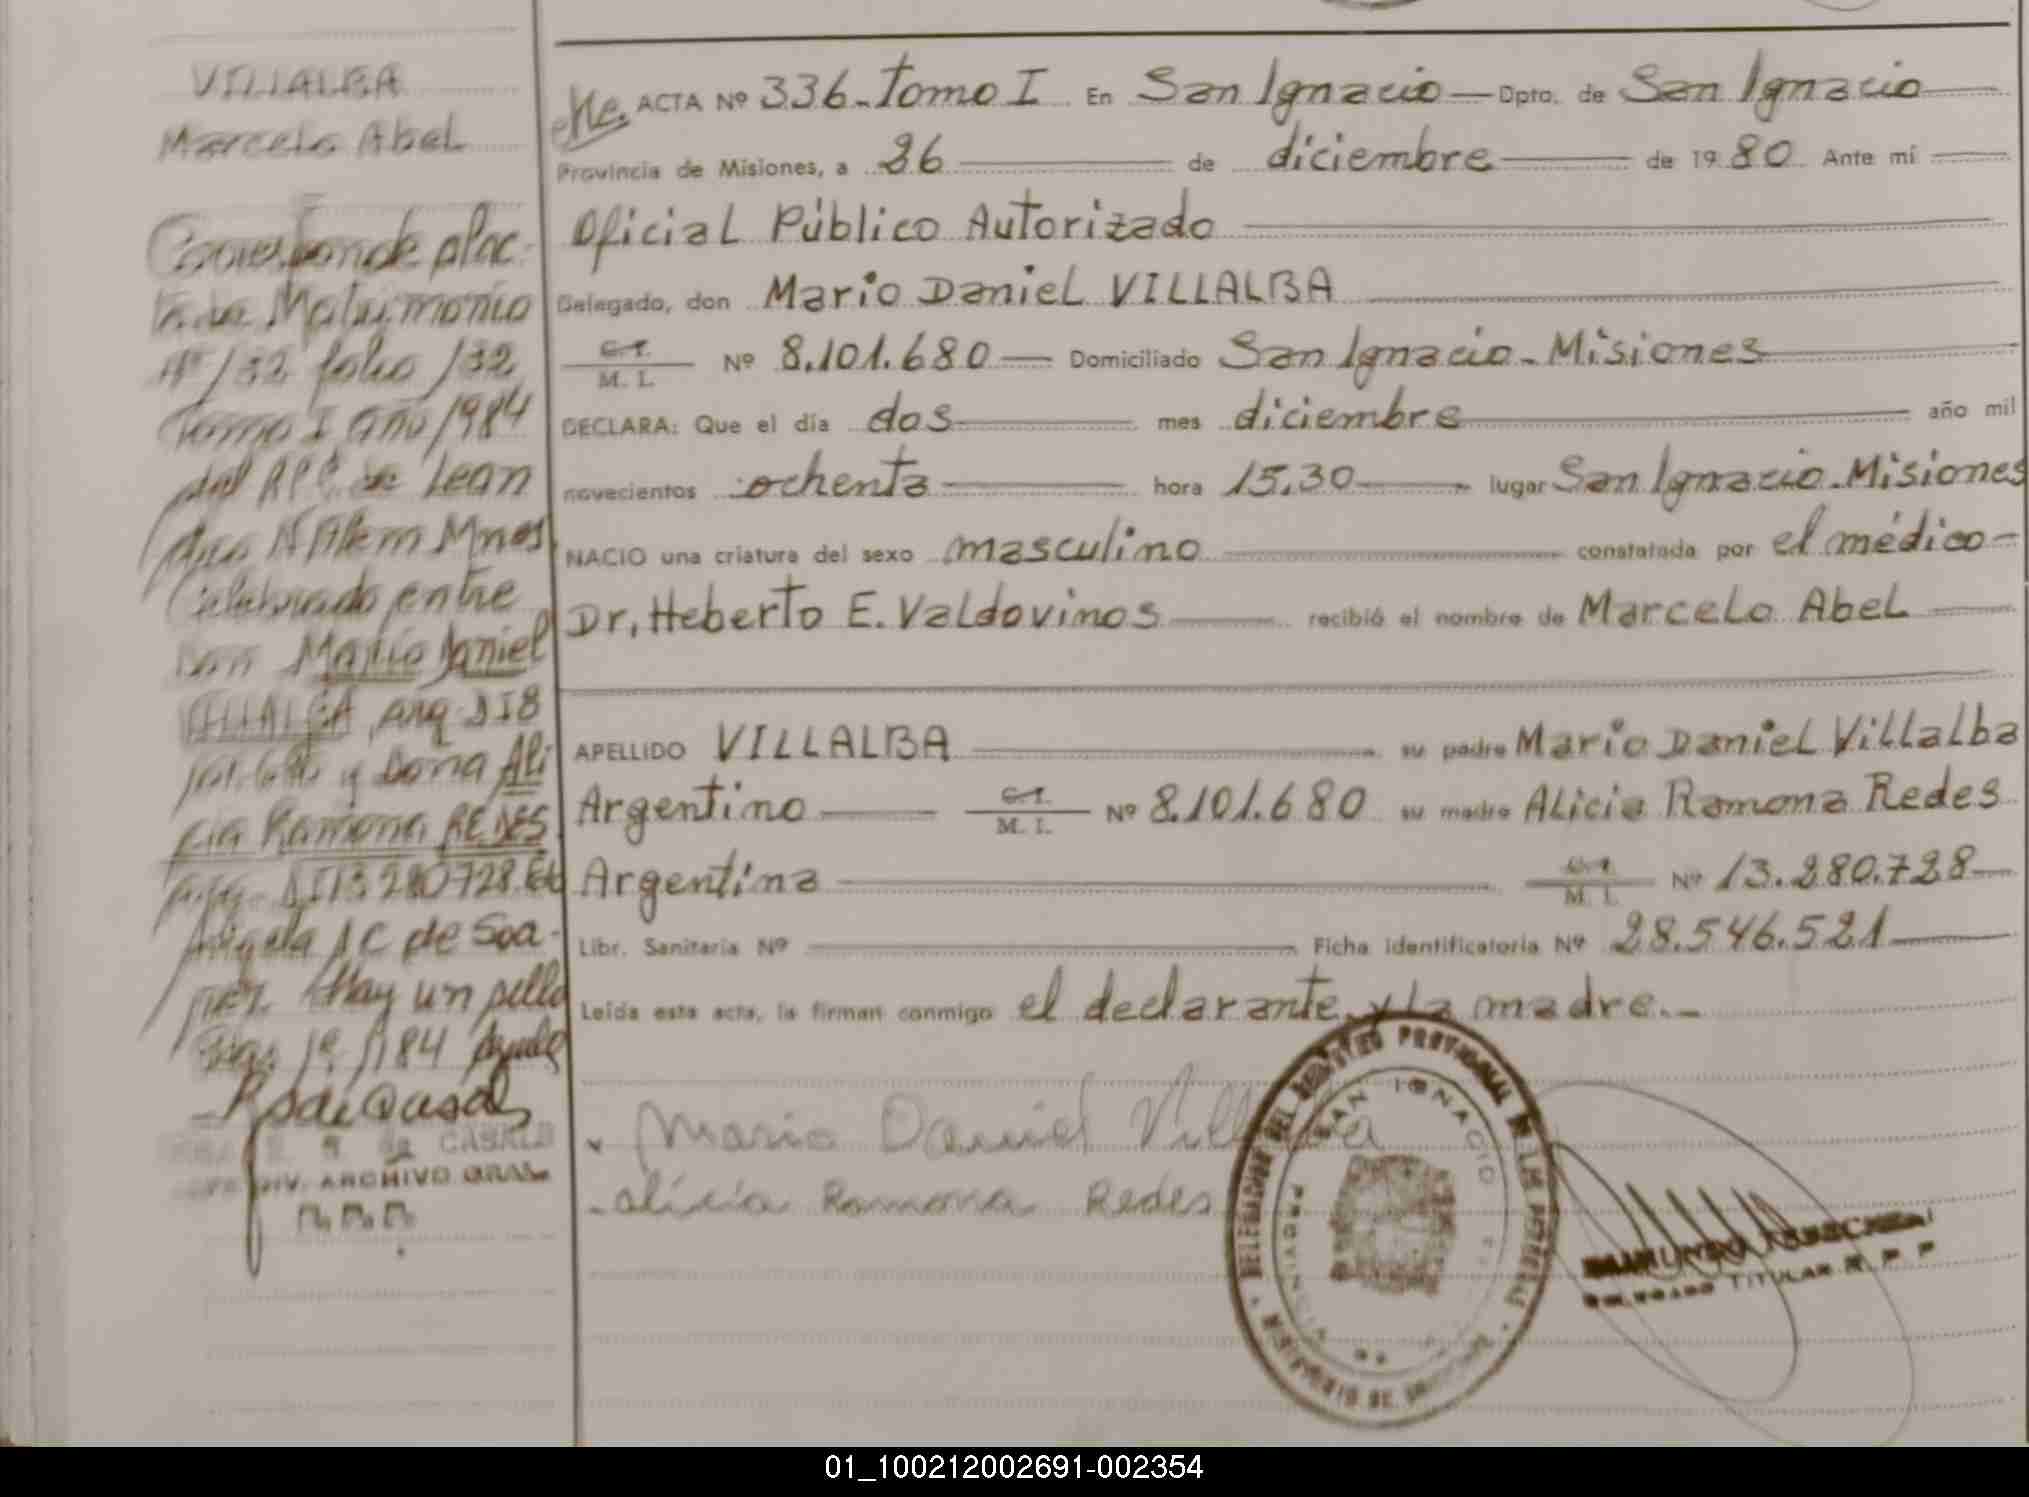 VILLALBA
Marcelo Abel
Corresponde al ac-
ta de Matrimonio
Nº 132 folio 132
Tomo I año 1984
del RPP de Lean
dro N Alem Mnes.
Celebrado entre
Don Mario Daniel
VILLALBA, arg DI 8
101.680 y Doña Ali
cia Ramona REDES
arg. DI 13 280728. Fdo
Angela I C de Soa-
rez. Hay un sello
Pdas.
ARCHIVO GRAL
He. ACTA Nº 336 - Tomo I En San Ignacio — Dpto. de San Ignacio
Provincia de Misiones, a 26 de diciembre de 1980 Ante mí
Oficial Público Autorizado
Delegado, don Mario Daniel VILLALBA
C.I.
M. I. Nº 8.101.680 — Domiciliado San Ignacio - Misiones
DECLARA: Que el día dos mes diciembre año mil
novecientos ochenta hora 15.30 lugar San Ignacio - Misiones
NACIO una criatura del sexo masculino constatada por el médico -
Dr. Heberto E. Valdovinos recibió el nombre de Marcelo Abel
APELLIDO VILLALBA su padre Mario Daniel Villalba
Argentino C.I. M. I. Nº 8.101.680 su madre Alicia Ramona Redes
Argentina C.I. M. I. Nº 13.280.728
Libr. Sanitaria Nº Ficha Identificatoria Nº 28.546.521
Leída esta acta, la firman conmigo el declarante y la madre. -
Mario Daniel Villalba
Alicia Ramona Redes
DELEGACION DEL REGISTRO PROVINCIAL DE LAS PERSONAS
SAN IGNACIO
PROVINCIA
MINISTERIO DE
TITULAR R P P
01_100212002691-002354